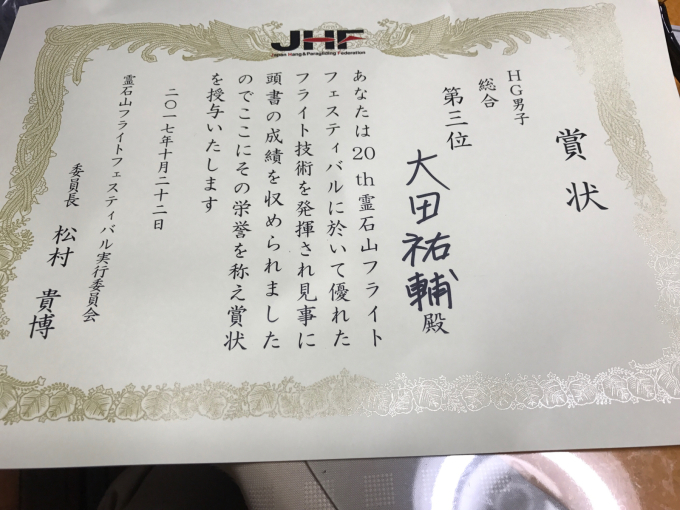 JHF
Japan Hang & Paragliding Federation
賞状
HG男子
総合
第三位
大田祐輔殿
あなたは20th霊石山フライト
フェスティバルに於いて優れた
フライト技術を発揮され見事に
頭書の成績を収められました
のでここにその栄誉を称え賞状
を授与いたします
二〇一七年十月二十二日
霊石山フライトフェスティバル実行委員会
委員長 松村 貴博